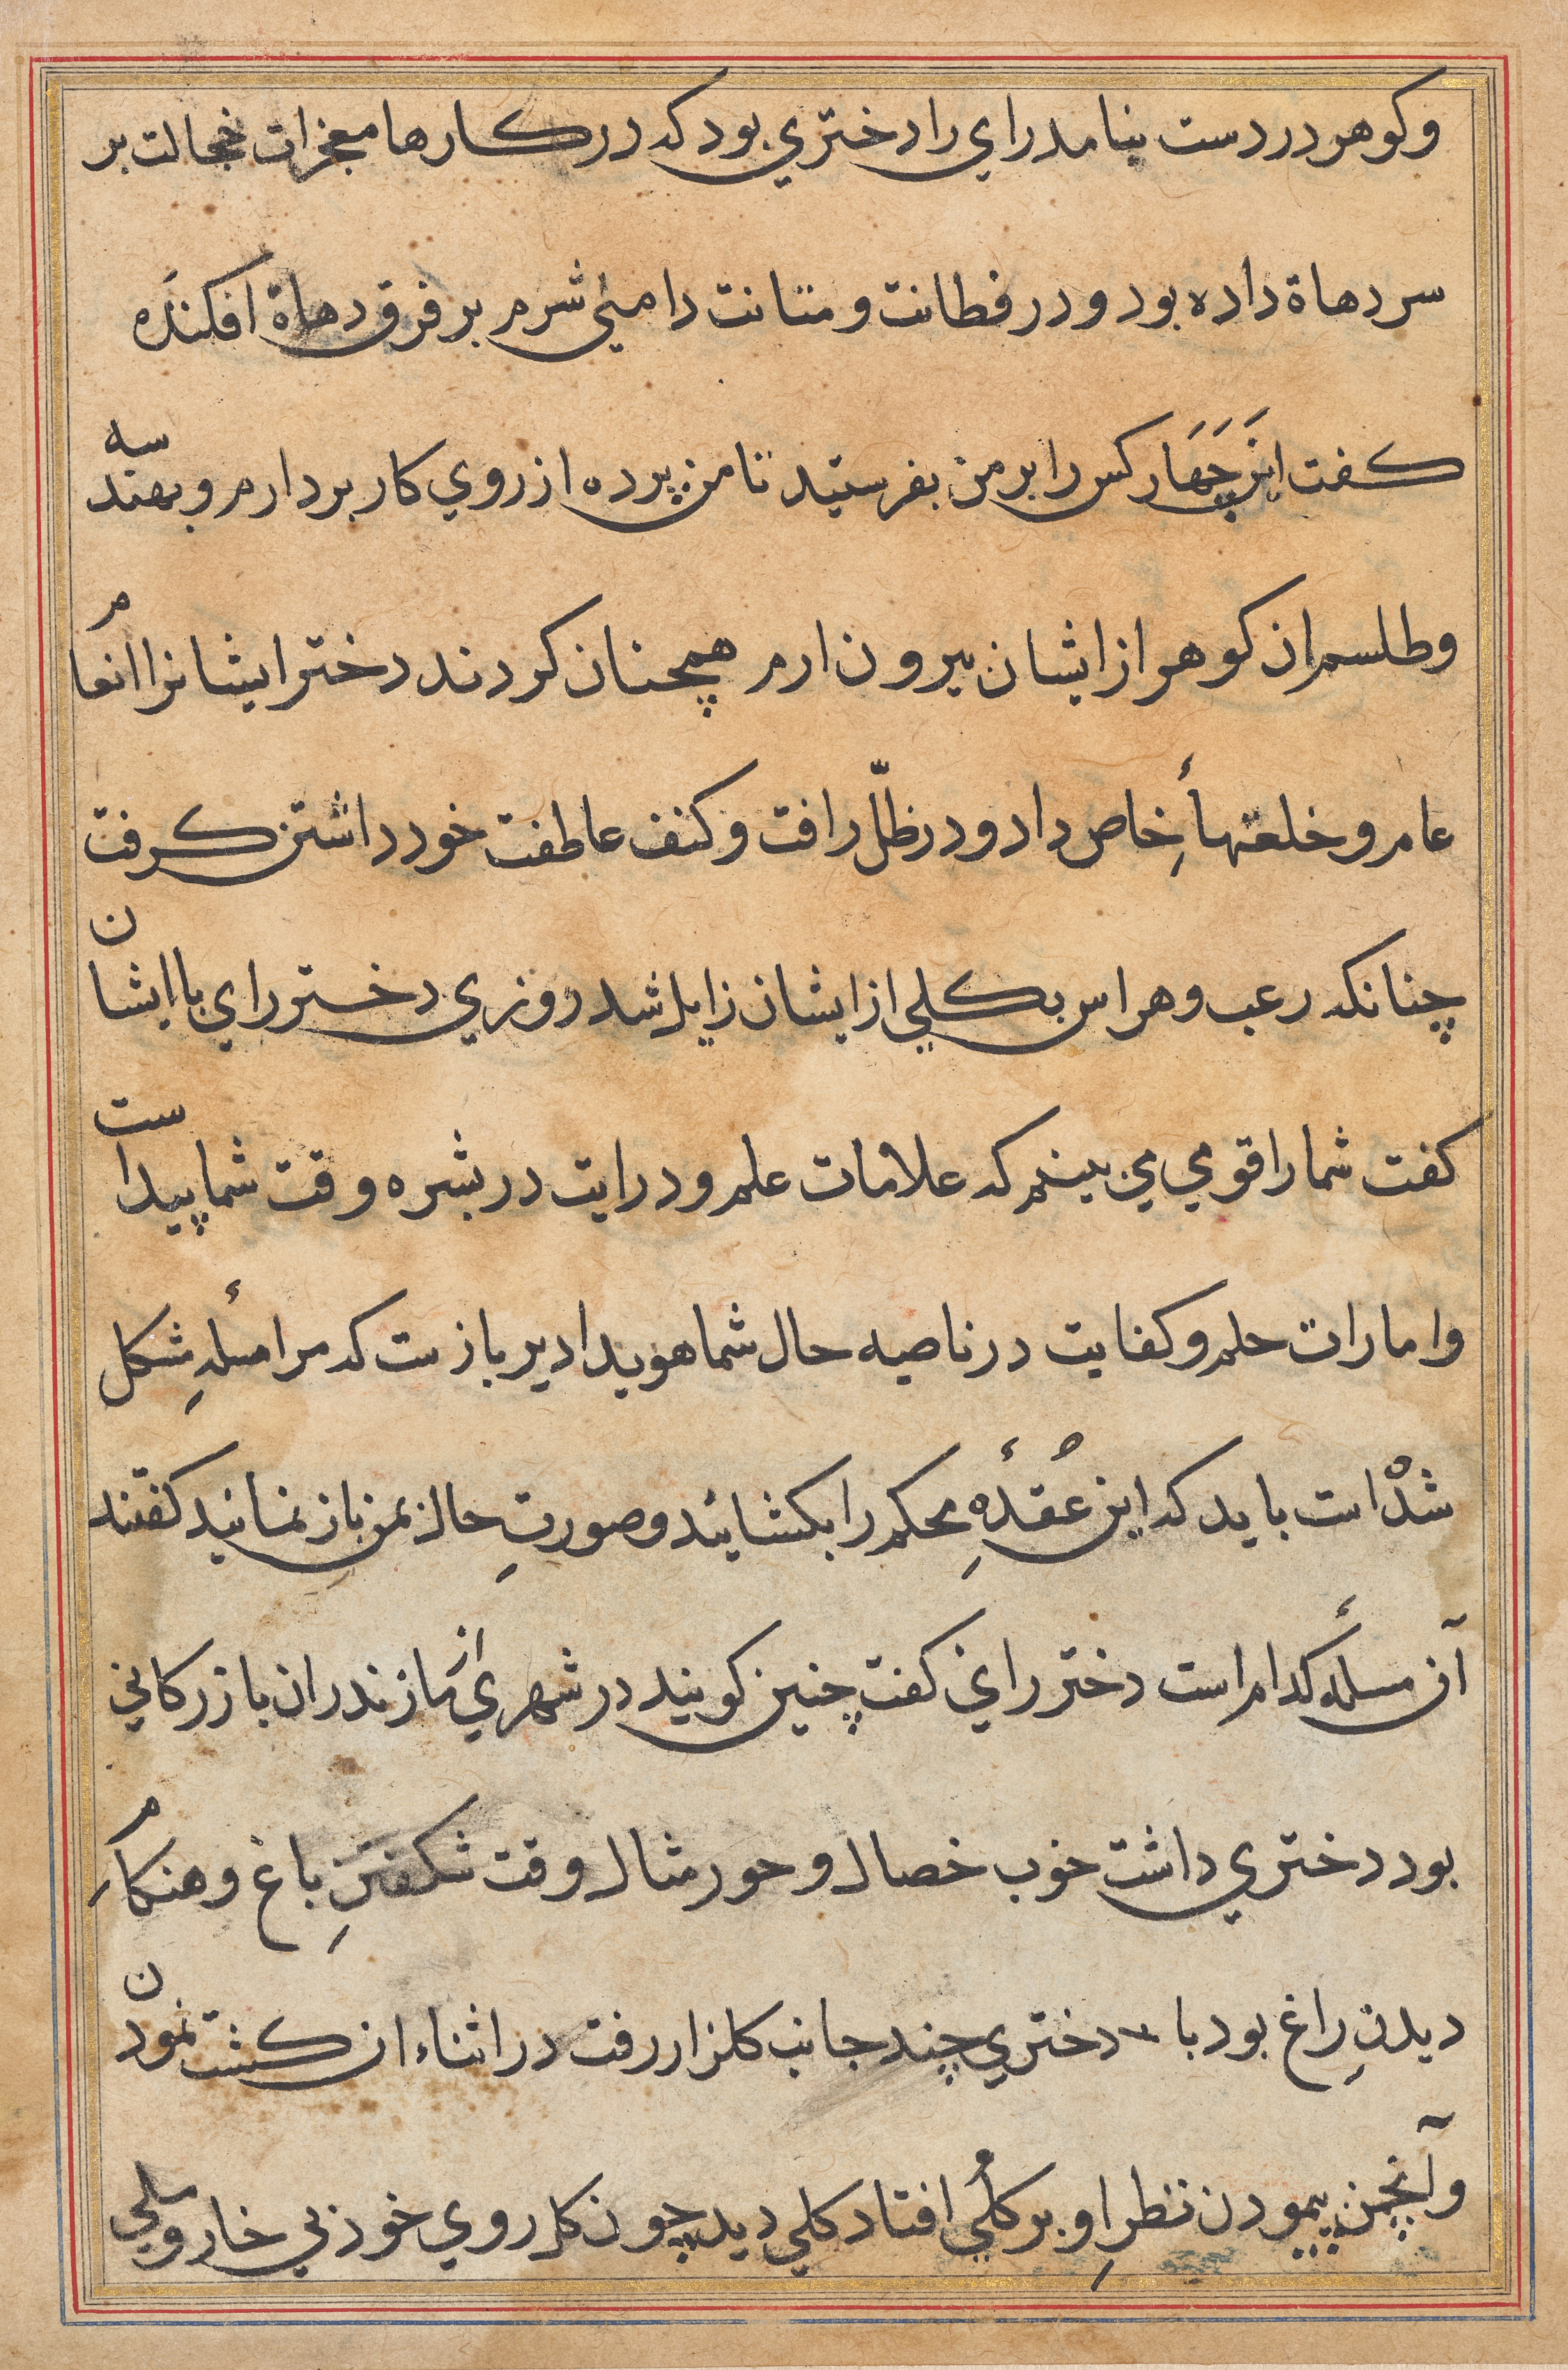 وکوهر در دست بنامد راي را دختري بود که در کارها معجزات خجالت بر
سر دهاة داده بود و در فطانت و متانت دامني شرم بر فرق دهاة افکنده
کفت این چَهَار کس را بر من بفرستید تا من پرده از روي کار بردارم و بهندسه
وطلسم ان کوهر از ایشان بیرون ارم همچنان کردند دختر ایشانرا انعام
عام و خلعتهاءِ خاص داد و در ظلّ رافت و کنف عاطفت خود داشتن کرفت
چنانکه رعب و هراس بکلي از ایشان زایل شد روزي دختر راي با ایشان
کفت شما را قومي مي بینم که علامات علم و درایت در بشره وقت شما پیداست
وامارات حلم و کفایت در ناصیه حال شما هویدا دیر بازست که مرا مسٔلهِ مشکل
شدْه است باید که این عُقدهٔ محکم را بکشائید و صورتِ حال بمن باز نمائید کفتند
آن مسٔله کدام است دختر راي کفت چنین کویند در شهري از مازندران بازرکاني
بود دختري داشت خوب خصال و حور مثال وقت شکفتنِ باغ و هنکامِ
دیدنِ راغ بود با دختري چند جانب کلزار رفت در اثناء ان کشت نمودن
وآنجمن پیمودن نظرِ او بر کلُي افتاد کلي دید چون کل روي خود بي خار ولي